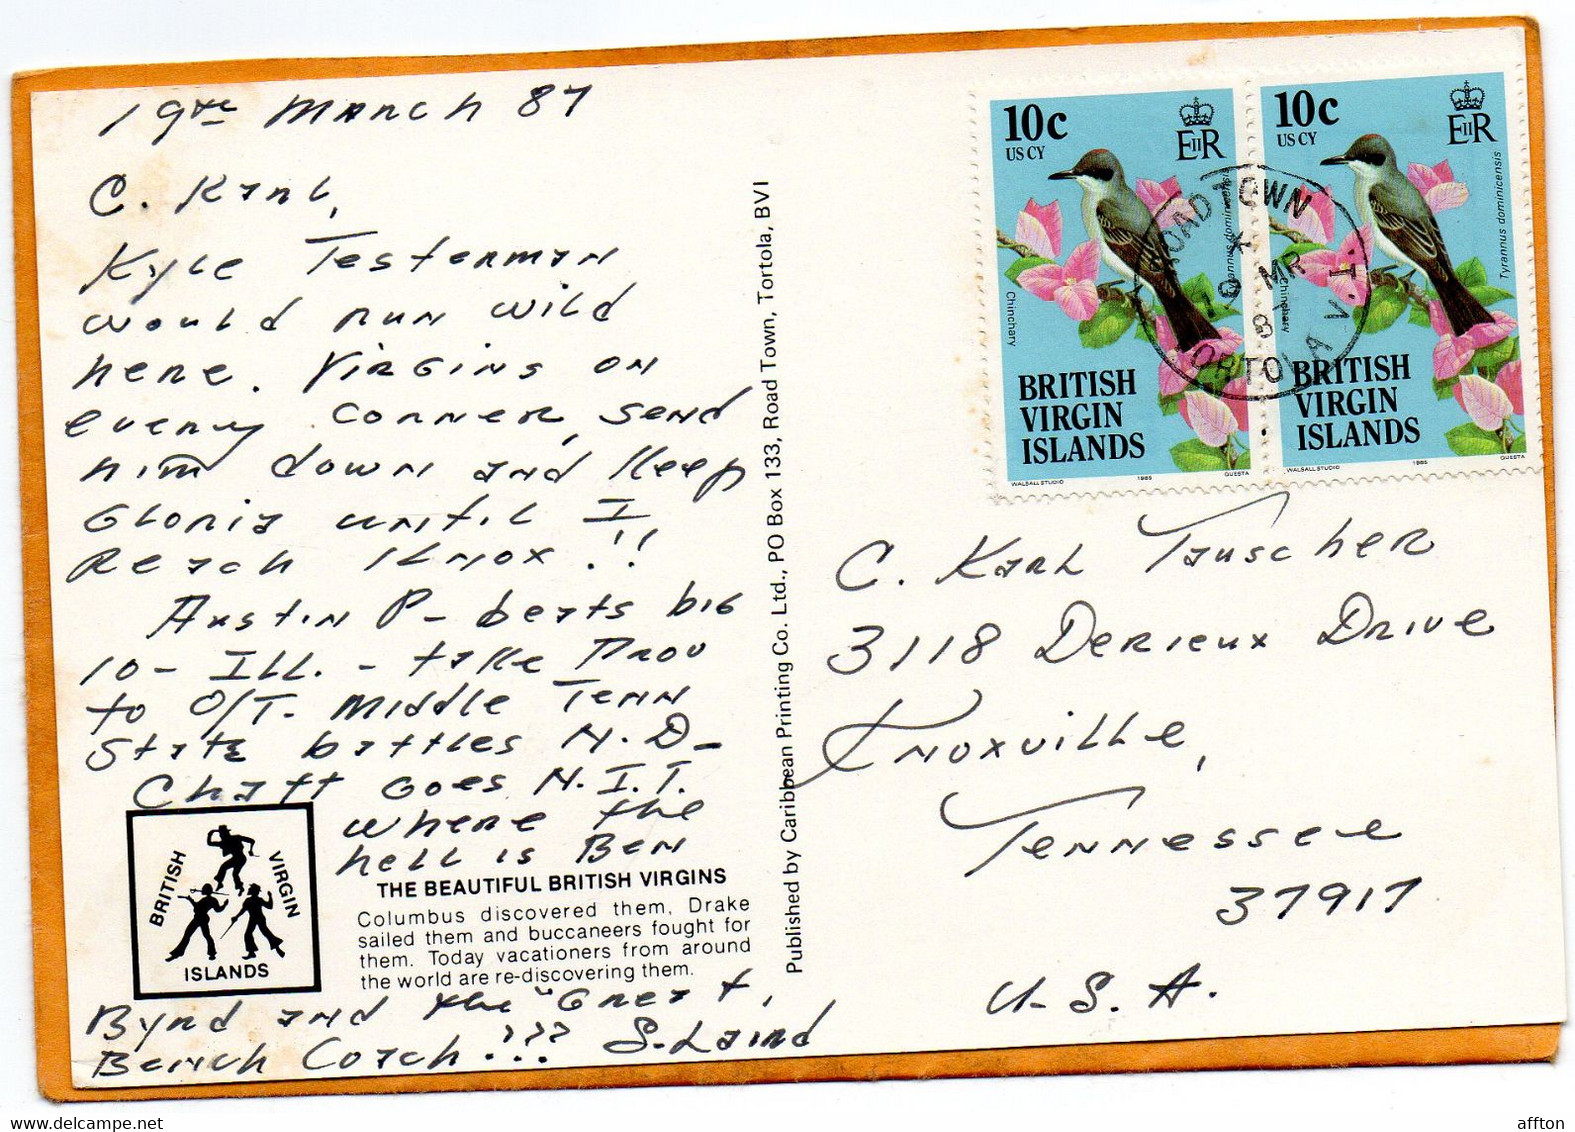 19th March 87
C. Karl,
Kyle Testerman
would run wild
here. Virgins on
every corner, send
him down and keep
Gloria until I
Reach Knox.!!
Austin P- beats big
10- Ill. - take Prov
to O/T. Middle Tenn
State battles N.D-
Chatt Goes N.I.T.
where the
hell is Ben
Bynd and the "Great,
Bench Coach.??? S. Laird
BRITISH VIRGIN
ISLANDS
THE BEAUTIFUL BRITISH VIRGINS
Columbus discovered them, Drake
sailed them and buccaneers fought for
them. Today vacationers from around
the world are re-discovering them.
Published by Caribbean Printing Co. Ltd., PO Box 133, Road Town, Tortola, BVI
10c
US CY
EIIR
Chinchary
Tyrannus dominicensis
BRITISH
VIRGIN
ISLANDS
WALSALL STUDIO 1985 QUESTA
10c
US CY
EIIR
Chinchary
Tyrannus dominicensis
BRITISH
VIRGIN
ISLANDS
WALSALL STUDIO 1985 QUESTA
ROAD TOWN
19 MR
8
TORTOLA V.I.
C. Karl Tauscher
3118 Derieux Drive
Knoxville,
Tennessee
37917
U.S.A.
affton